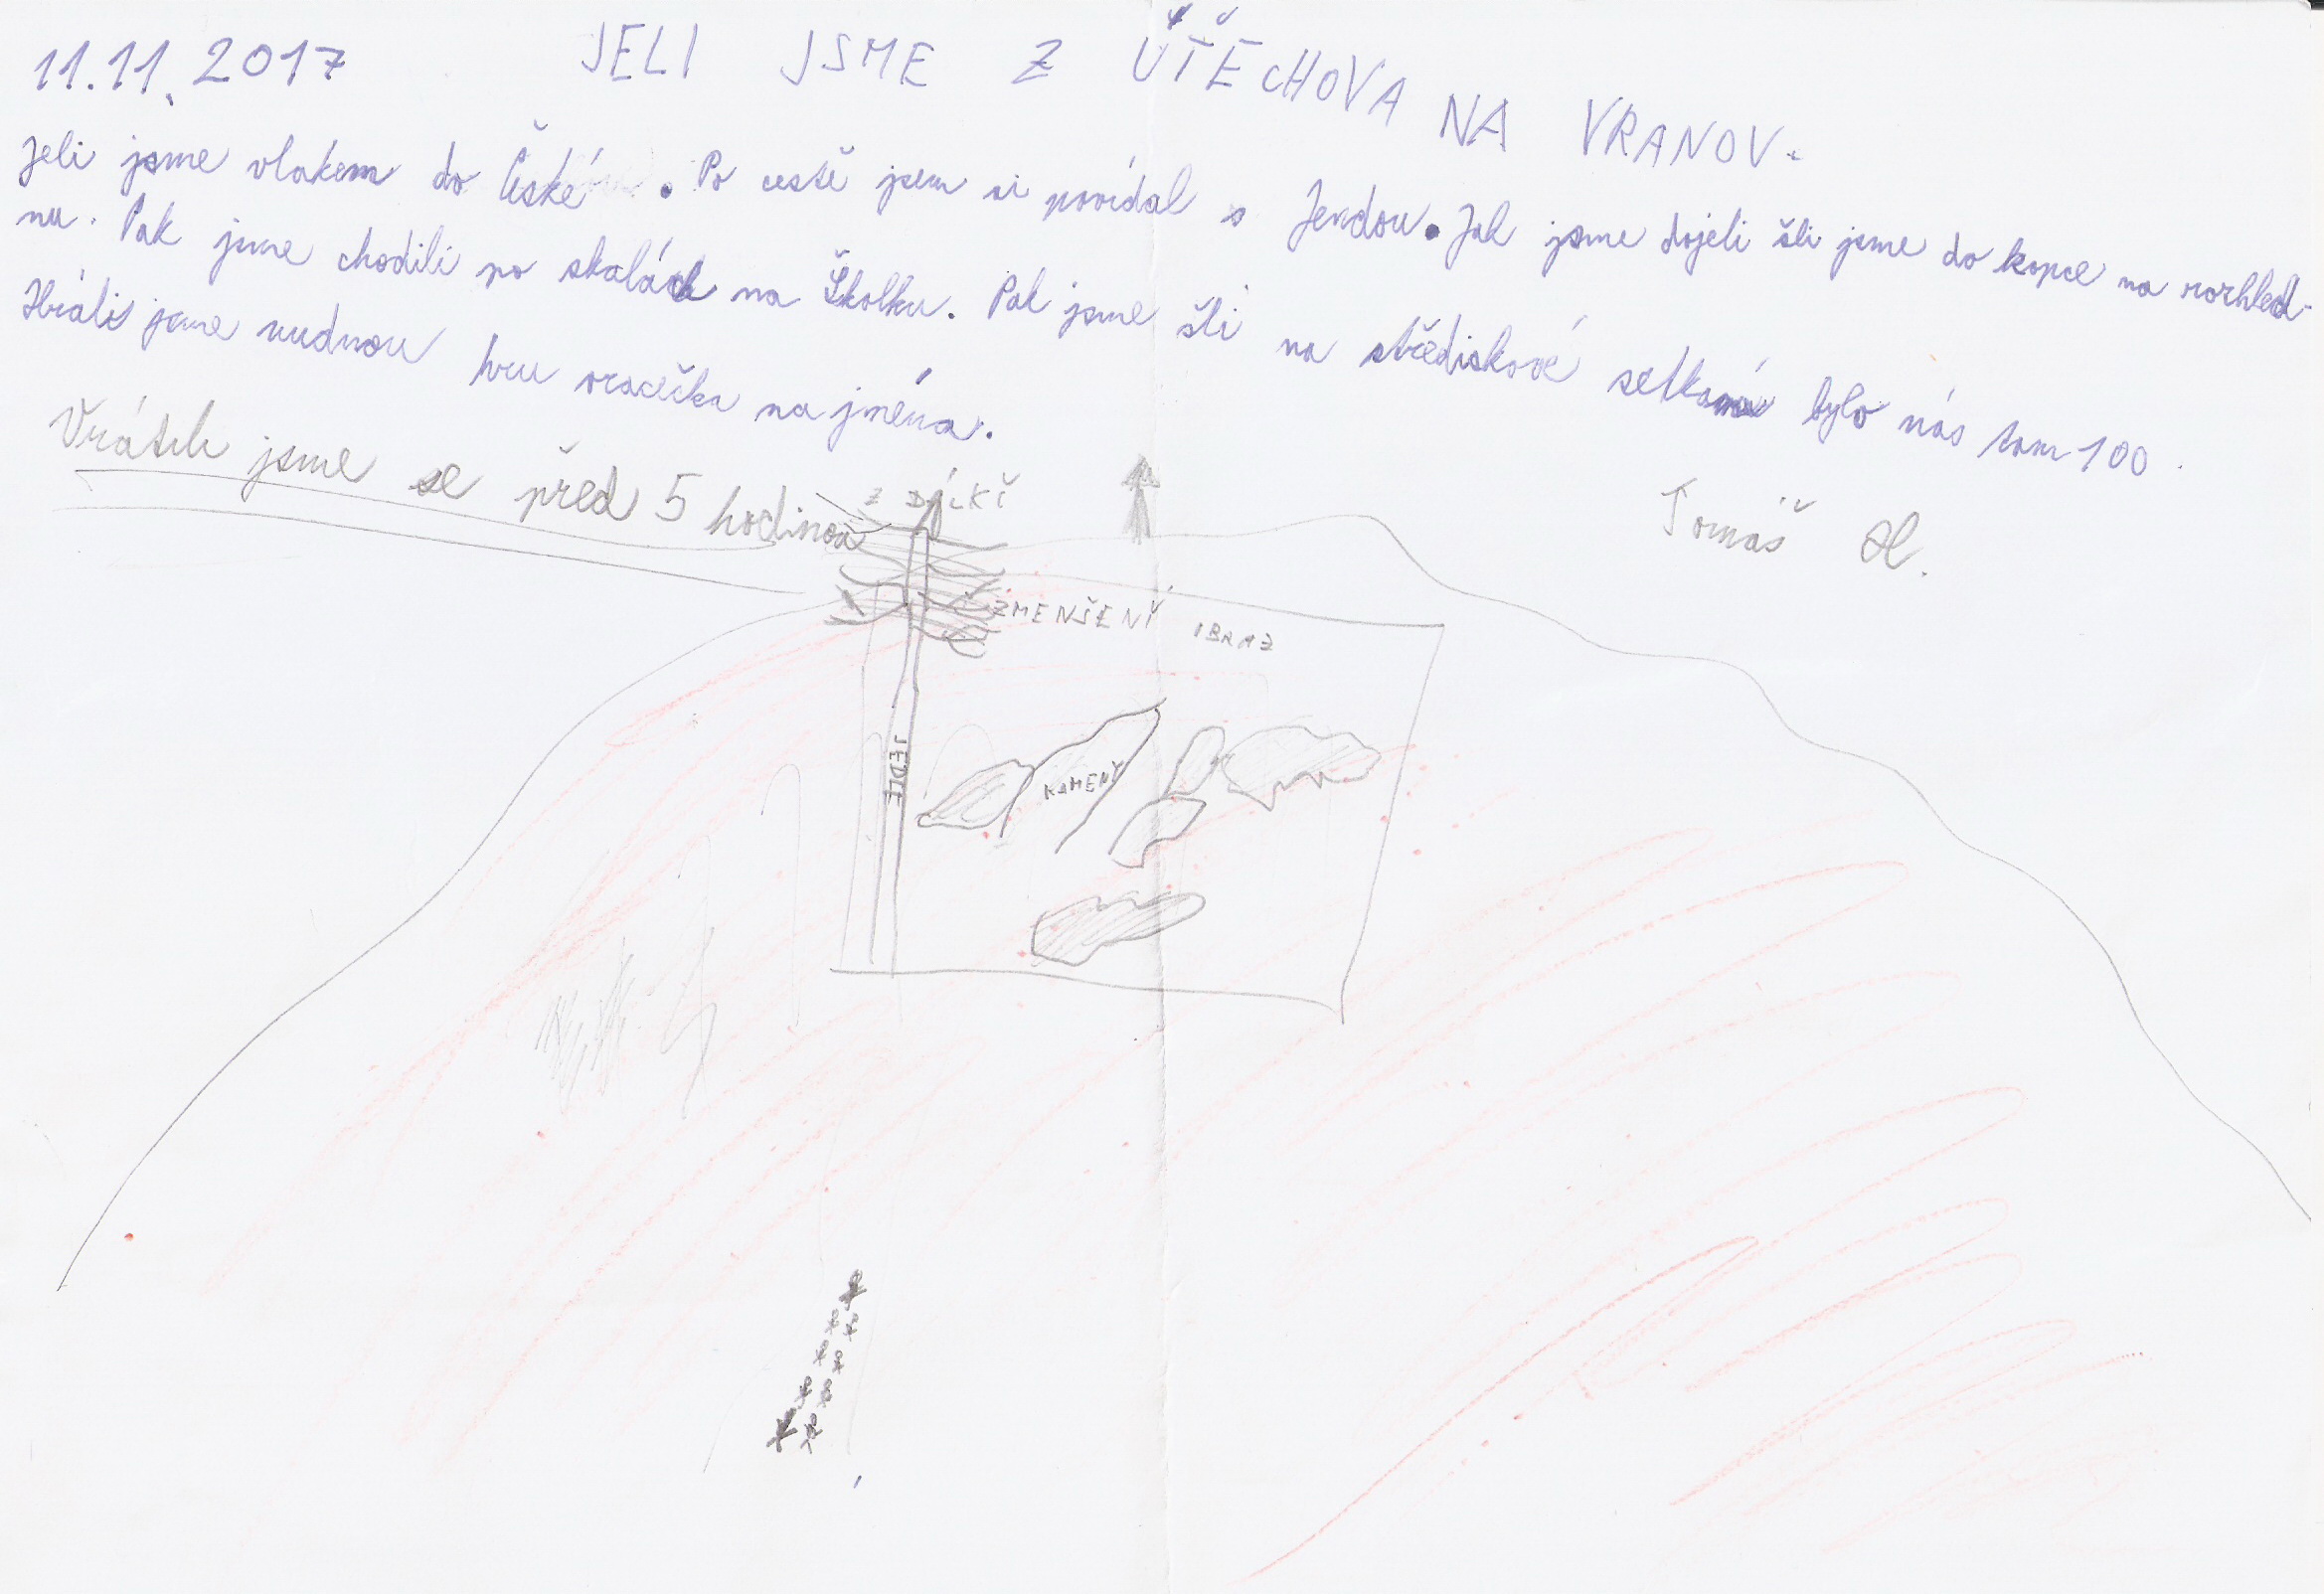 11.11.2017 JELI JSME Z ÚTĚCHOVA NA VRANOV.
Jeli jsme vlakem do České. Po cestě jsem si povídal s Jendou. Jak jsme dojeli šli jsme do kopce na rozhled-
nu. Pak jsme chodili po skalách na Školku. Pak jsme šli na střediskové setkání bylo nás tam 100.
Hráli jsme nudnou hru ovocečka na jména.
Vrátili jsme se před 5 hodinou
Tomáš H.
Z DÁLKĚ
ZMENŠENÍ
JEDLE
KAMENY